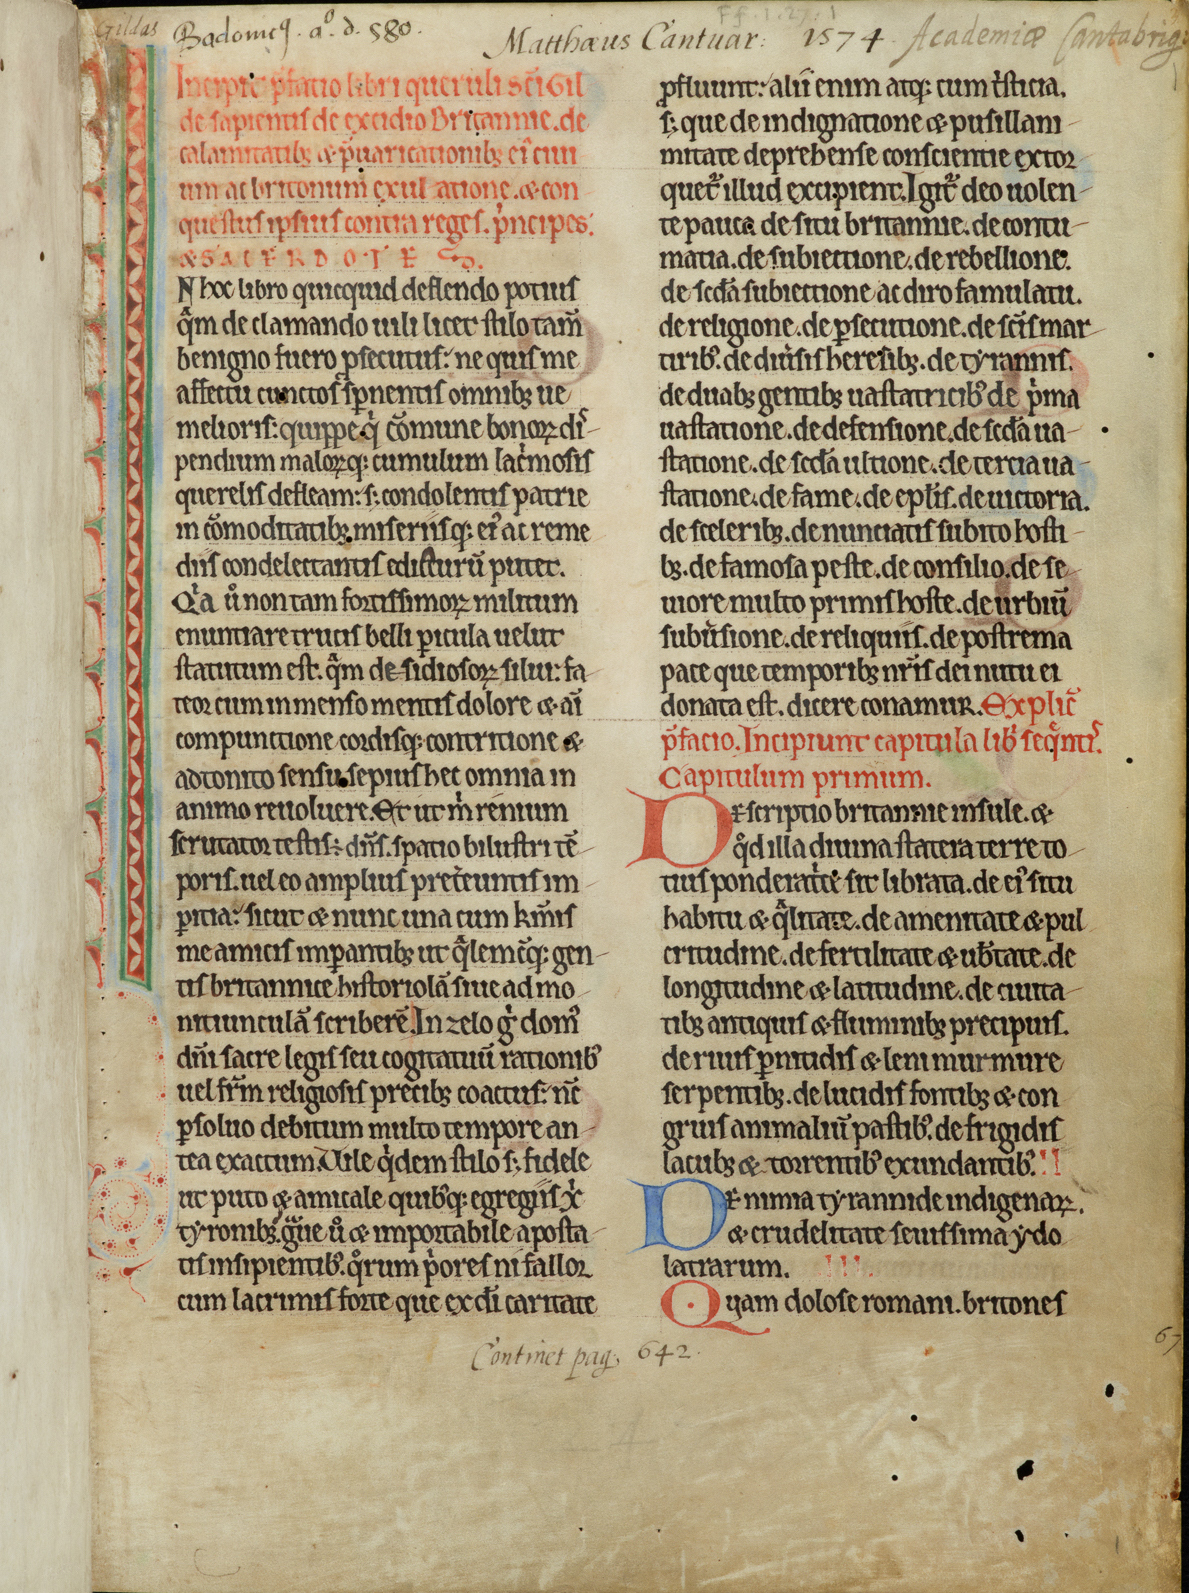 Gildas Badonicꝰ . aº. d. 580.
Ff.1.27.1
Matthæus Cantuar: 1574 Academiæ Cantabrig:
Incipit p̄fatio libri queruli sc̄i Gil
de sapientis de excidio Britannie. de
calamitatibꝫ & p̄uaricationibꝫ ei᷒ ciui
um ac britonum exul atione. & con
questus ipsius contra reges. pͥncipes.
& SACERDOTES.
N hoc libro quicquid deflendo potius
qͣm de clamando uili licet stilo tam̄
benigno fuero ꝓsecutus: ne quis me
affectu cunctos sꝑnentis omnibꝫ ue
melioris: quippe qͥ cōmune bonoꝝ dis
pendium maloꝝqꝫ cumulum lacͥmosis
querelis defleam: sꝫ condolentis patrie
in cōmoditatibꝫ, miseriisqꝫ ei᷒ ac reme
diis condelectantis edicturū putet.
Qͥa u̾ non tam fortissimoꝝ militum
enuntiare trucis belli ꝑicula uelut
statutum est. qͣm de sidiosoꝝ silui: fa
teor cum inmenso mentis dolore & aī
compunctione cordisqꝫ contritione &
adtonito sensu sepius hec omnia in
animo reuoluere. Et ut m̄ renium
scrutator testis: dn̄s. spatio bilustri tē
poris. uel eo amplius pretereuntis im
ꝑitia: sicut & nunc una cum km̄is
me amicis imꝑantibꝫ ut qͣlemcūqꝫ gen
tis britannice historiolā siue ad mo
nitiunculā scriberē. In zelo gͥ dom᷒
dn̄i sacre legis seu cogitatuū rationibꝰ
uel fr̄m religiosis precibꝫ coactus: nc̄
ꝑsoluo debitum multo tempore an
tea exactum. Uile qͥdem stilo sꝫ fidele
ut puto & amicale quibꝰqꝫ egregiis xͥ
tyronibꝫ. gͣue u̾ & importabile aposta
tis insipientibꝰ. qͦrum pͥores ni fallor
cum lacrimis forte que ex dī caritate
ꝓfluunt: alii enim atqꝫ cum tͥsticia.
sꝫ que de indignatione & pusillani
mitate deprehense conscientie extor
quet᷒ illud excipient. Igit᷒ deo uolen
te pauca de situ britannie. de contu
matia. de subiectione. de rebellione.
de sc̄da subiectione ac diro famulatu.
de religione. de ꝑsecutione. de sc̄is mar
tiribꝰ. de diu̾sis heresibꝫ. de tyrannis.
de duabꝫ gentibꝫ uastatricibꝰ de pͥma
uastatione. de defensione. de sc̄da ua
statione. de sc̄da ultione. de tercia ua
statione. de fame. de epl̄is. de uictoria.
de sceleribꝫ. de nunciatis subito hosti
bꝫ. de famosa peste. de consilio. de se
uiore multo primis hoste. de urbiū
subu̾sione. de reliquiis. de postrema
pace que temporibꝫ nr̄is dei nutu ei
donata est. dicere conamur. Explic̄
p̄facio. Incipiunt capitula libͥ seqͣnti᷒.
Capitulum primum.
Descriptio britannie insule. &
qͦd illa diuina statera terre to
tius ponderatͥce sit librata. de ei᷒ situ
habitu & qͣlitate. de amenitate & pul
critudine. de fertilitate & ub̾tate. de
longitudine & latitudine. de ciuita
tibꝫ antiquis & fluminibꝫ precipuis.
de riuis ꝑnitidis & leni murmure
serpentibꝫ. de lucidis fontibꝫ & con
gruis animaliū pastibꝰ. de frigidis
lacubꝫ & torrentibꝰ exundantibꝰ. II
De nimia tyrannide indigenaꝝ.
& crudelitate seuissima ydo
latrarum. III.
Quam dolose romani. britones
Continet pag. 642.
67